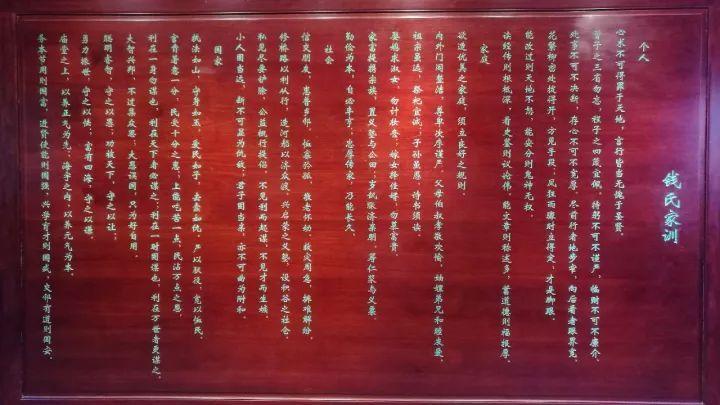 钱氏家训
个人
心术不可得罪于天地，言行皆当无愧于圣贤。
曾子之三省勿忘。程子之四箴宜佩。持躬不可不谨严。临财不可不廉介。
处事不可不决断。存心不可不宽厚。尽前行者地步窄，向后看者眼界宽。
花繁柳密处拨得开，方见手段；风狂雨骤时立得定，才是脚跟。
能改过则天地不怒，能安分则鬼神无权。
读经传则根柢深，看史鉴则议论伟。能文章则称述多，蓄道德则福报厚。
家庭
欲造优美之家庭，须立良好之规则。
内外门闾整洁，尊卑次序谨严。父母伯叔孝敬欢愉，妯娌弟兄和睦友爱。
祖宗虽远，祭祀宜诚；子孙虽愚，诗书须读。
娶媳求淑女，勿计妆奁；嫁女择佳婿，勿慕富贵。
家富提携宗族，置义塾与公田；岁饥赈济亲朋，筹仁浆与义粟。
勤俭为本，自必丰亨；忠厚传家，乃能长久。
社会
信交朋友，惠普乡邻。恤寡矜孤，敬老怀幼。救灾周急，排难解纷。
修桥路以利从行，造河船以济众渡。兴启蒙之义塾，设积谷之社仓。
私见尽要铲除，公益概行提倡。不见利而起谋，不见才而生嫉。
小人固当远，断不可显为仇敌；君子固当亲，亦不可曲为附和。
国家
执法如山，守身如玉，爱民如子，去蠹如仇。严以驭役，宽以恤民。
官肯著意一分，民受十分之惠。上能吃苦一点，民沾万点之恩。
利在一身勿谋也，利在天下者必谋之；利在一时固谋也，利在万世者更谋之。
大智兴邦，不过集众思；大愚误国，只为好自用。
聪明睿智，守之以愚；功被天下，守之以让；
勇力振世，守之以怯；富有四海，守之以谦。
庙堂之上，以养正气为先。海宇之内，以养元气为本。
务本节用则国富；进贤使能则国强；兴学育才则国盛；交邻有道则国安。